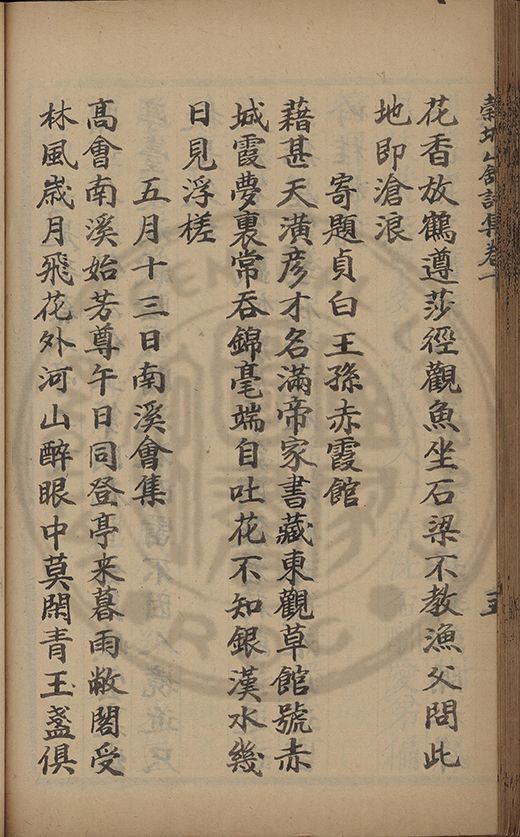 花香放鶴遵莎徑觀魚坐石梁不教漁父問此
地即滄浪
寄題貞白王孫赤霞館
藉甚天潢彥才名滿帝家書藏東觀草館號赤
城霞夢裏常吞錦毫端自吐花不知銀漢水幾
日見浮槎
五月十三日南溪會集
髙會南溪始芳尊午日同登亭来暮雨敝閣受
林風歲月飛花外河山醉眼中莫閑青玉盞俱